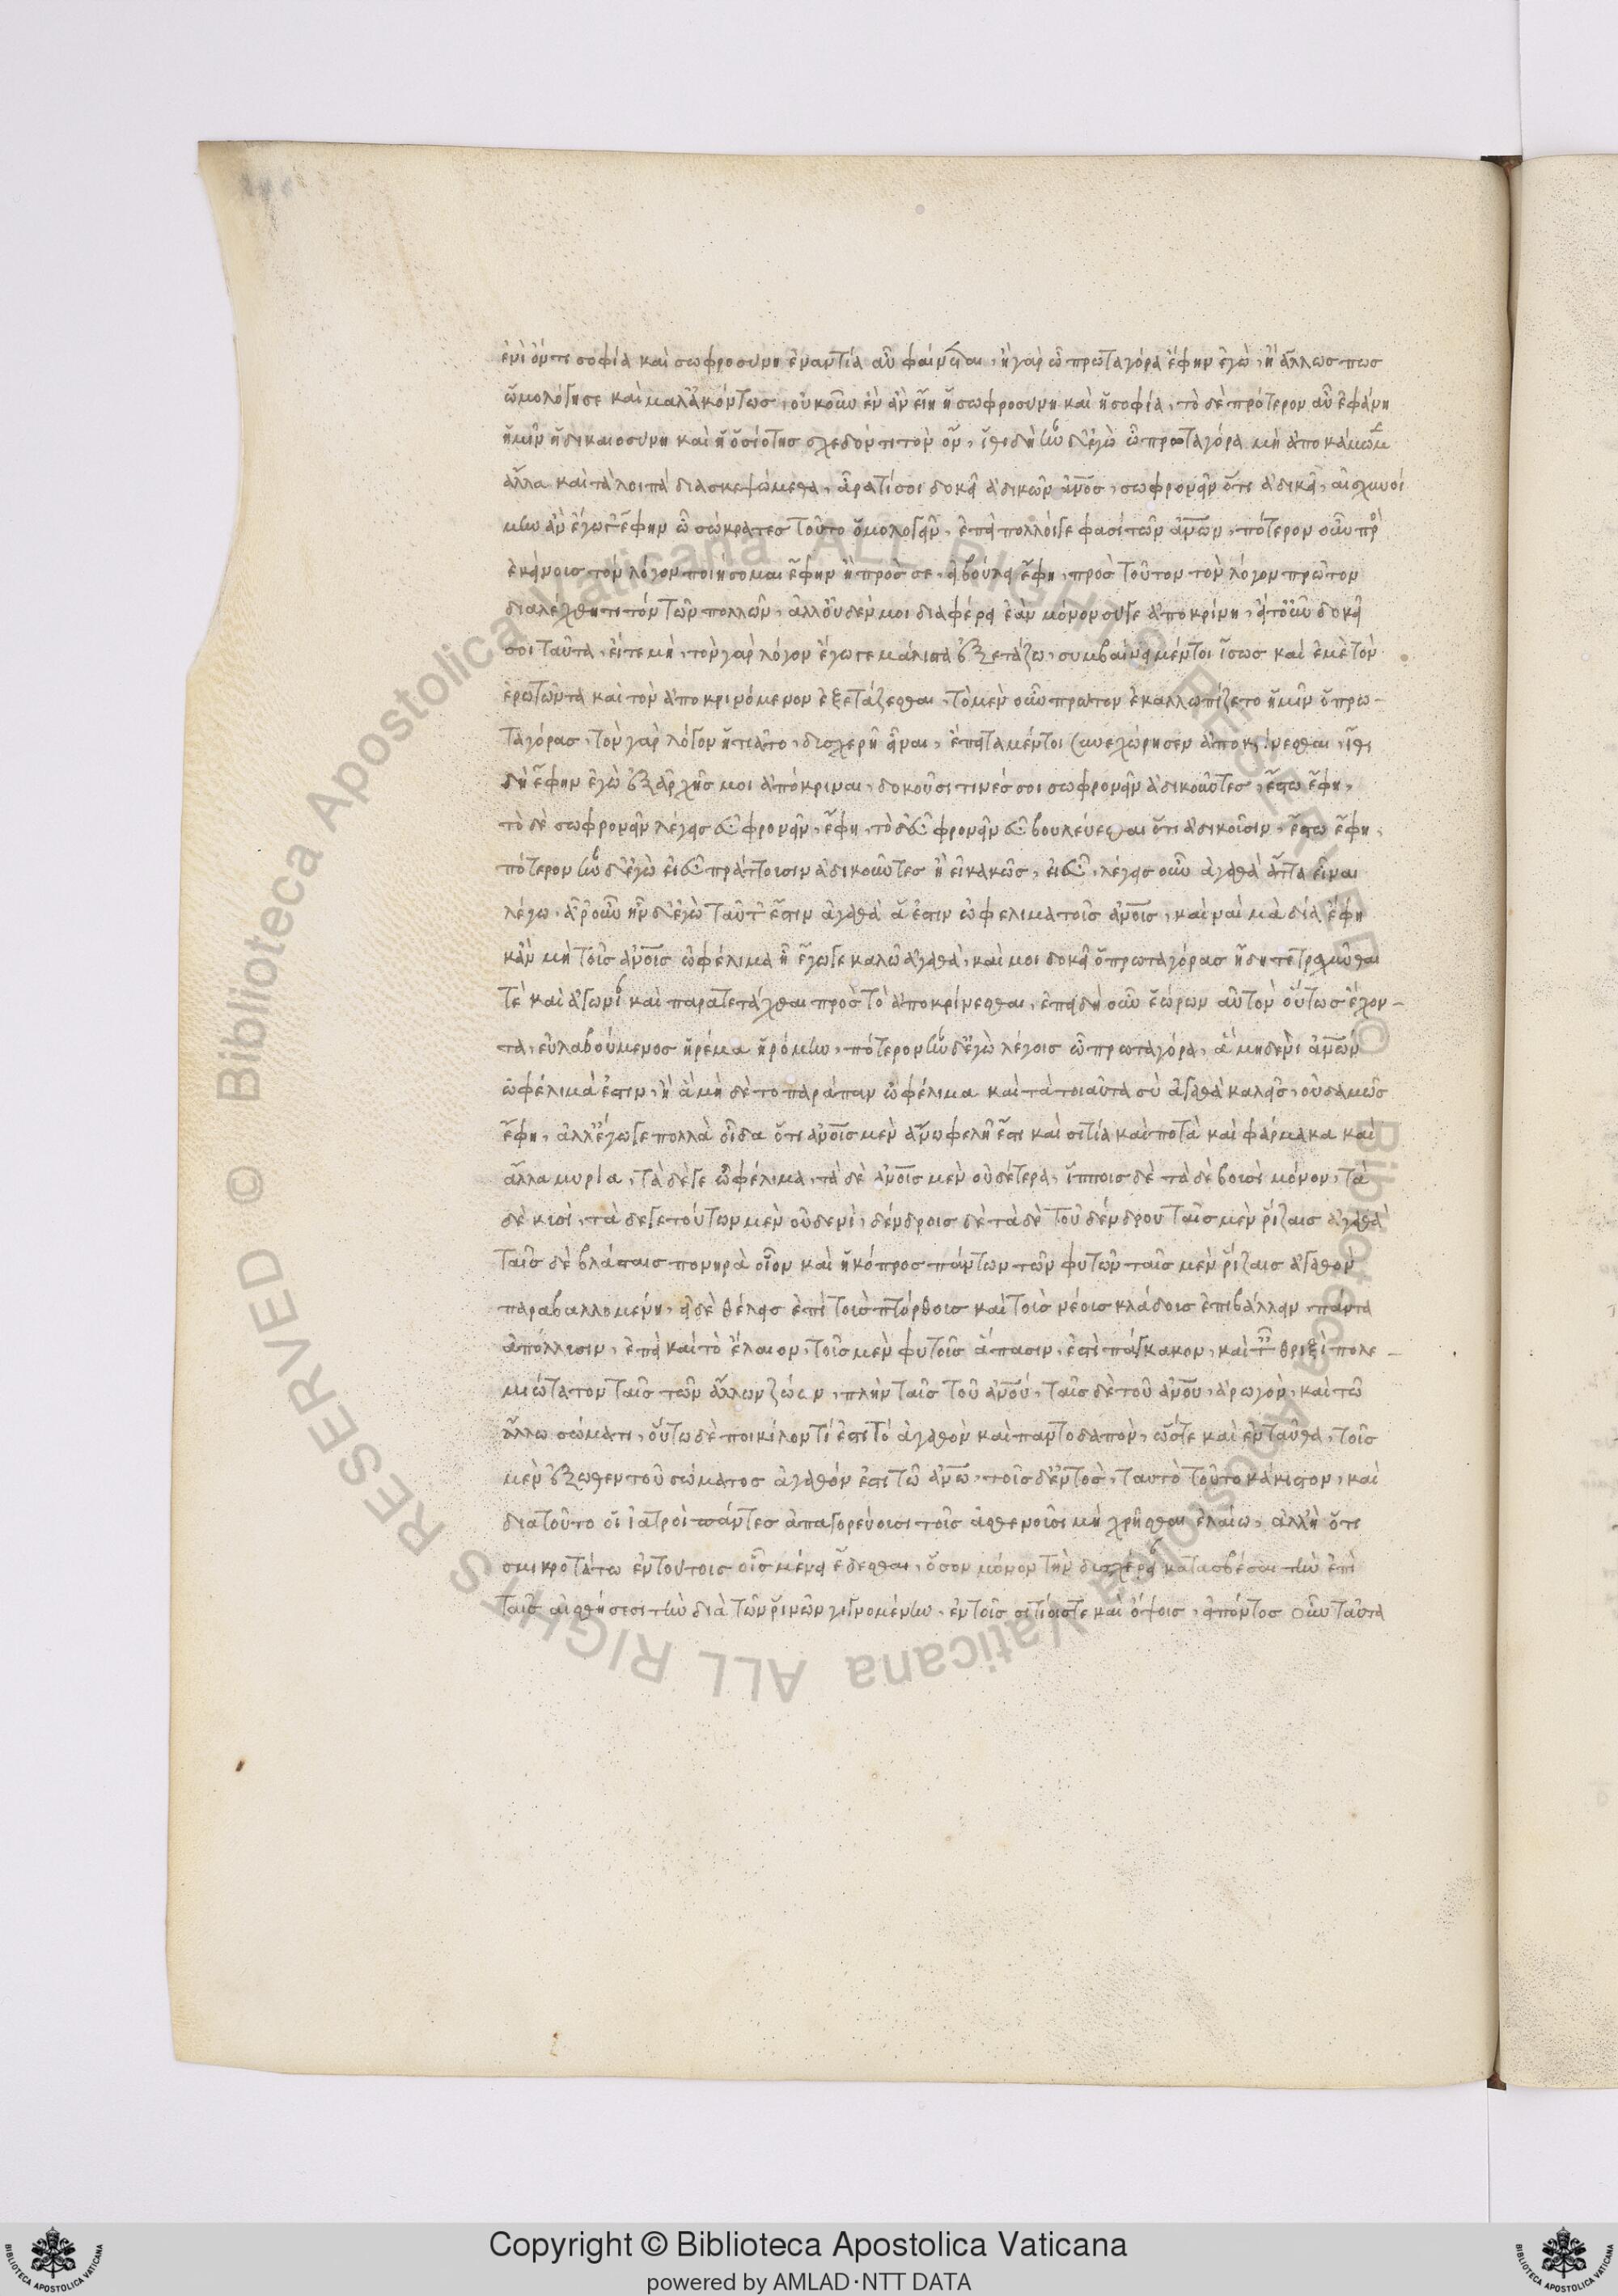 ἑνὶ ὄντι σοφία καὶ σωφροσύνη ἐναντία αὖ φαίνεται, ἦ γὰρ ὦ πρωταγόρα ἔφην ἐγὼ, ἢ ἄλλως πως
ὡμολόγησε καὶ μαλ' ἀκόντως, οὐκοῦν ἓν ἂν εἴη ἡ σωφροσύνη καὶ ἡ σοφία, τὸ δὲ πρότερον αὖ ἐφάνη
ἡμῖν ἡ δικαιοσύνη καὶ ἡ ὁσιότης σχεδόν τι τὸν ὂν, ἴθι δὴ ἦν δ' ἐγὼ ὦ πρωταγόρα μὴ ἀποκάμωμεν
ἀλλὰ καὶ τὰ λοιπὰ διασκεψώμεθα, ἆρα τί σοι δοκεῖ ἀδικῶν ἄνος, σωφρονεῖν ὅτι ἀδικεῖ, αἰσχυνοί
μην ἂν ἔγωγ' ἔφην ὦ σώκρατες τοῦτο ὁμολογεῖν, ἐπεὶ πολλοί γε φασὶ τῶν ἀνων, πότερον οὖν πρὸς
ἐκείνοις τὸν λόγον ποιήσομαι ἔφην ἢ πρὸς σε, εἰ βούλει ἔφη, πρὸς τοῦτον τὸν λόγον πρῶτον
διαλέχθητι τὸν τῶν πολλῶν, ἀλλ' οὐδέν μοι διαφέρει ἐὰν μόνον σύ γε ἀποκρίνη, εἴτ' οὖν δοκεῖ
σοι ταῦτα, εἴτε μὴ, τὸν γὰρ λόγον ἔγωγε μάλιστα ἐξετάζω, συμβαίνει μέντοι ἴσως καὶ ἐμὲ τὸν
ἐρωτῶντα καὶ τὸν ἀποκρινόμενον ἐξετάζεσθαι, τὸ μὲν οὖν πρῶτον ἐκαλλωπίζετο ἡμῖν ὁ πρω-
ταγόρας, τὸν γὰρ λόγον ἠτιᾶτο, δυσχερῆ εἶναι, ἔπειτα μέντοι συνεχώρησεν ἀποκρίνεσθαι, ἴθι
δὴ ἔφην ἐγὼ ἐξ ἀρχῆς μοι ἀπόκριναι, δοκοῦσι τινές σοι σωφρονεῖν ἀδικοῦντες, ἔστω ἔφη,
τὸ δὲ σωφρονεῖν λέγεις εὖ φρονεῖν, ἔφη, τὸ δ' εὖ φρονεῖν εὖ βουλεύεσθαι ὅτι ἀδικοῦσιν, ἔστω ἔφη,
πότερον ἦν δ' ἐγὼ εἰ εὖ πράττουσιν ἀδικοῦντες ἢ εἰ κακῶς, εἰ εὖ, λέγεις οὖν ἀγαθὰ ἄττα εἶναι
λέγω, ἆρ' οὖν ἦν δ' ἐγὼ ταῦτ' ἔστιν ἀγαθὰ ἅ ἐστιν ὠφέλιμα τοῖς ἀνοις, καὶ ναὶ μὰ δία ἔφη
κἂν μὴ τοῖς ἀνοις ὠφέλιμα ᾖ ἔγωγε καλῶ ἀγαθὰ, καί μοι δοκεῖ ὁ πρωταγόρας ἤδη τετραχύνθαι
τὲ καὶ ἀγωνιᾶν καὶ παρατετάχθαι πρὸς τὸ ἀποκρίνεσθαι, ἐπειδὴ οὖν ἑώρων αὐτὸν οὕτως ἔχον-
τα, εὐλαβούμενος ἠρέμα ἠρόμην, πότερον ἦν δ' ἐγὼ λέγεις ὦ πρωταγόρα, ἃ μηδενὶ ἀνων
ὠφέλιμά ἐστιν, ἢ ἃ μὴ δὲ το παράπαν ὠφέλιμα καὶ τὰ τοιαῦτα σὺ ἀγαθὰ καλεῖς, οὐδαμῶς
ἔφη, ἀλλ' ἔγωγε πολλὰ οἶδα ὅτι ἀνοις μὲν ἀνωφελῆ ἔστι καὶ σιτία καὶ ποτὰ καὶ φάρμακα καὶ
ἄλλα μυρία, τὰ δέ γε ὠφέλιμα, τὰ δὲ ἀνοις μὲν οὐδέτερα, ἵπποις δὲ τὰ δὲ βουσὶ μόνον, τὰ
δὲ κυσὶ, τὰ δέ γε τούτων μὲν οὐδενὶ, δένδροις δὲ τὰ δὲ τοῦ δένδρου ταῖς μὲν ῥίζαις ἀγαθὰ
ταῖς δὲ βλάσταις πονηρὰ οἷον καὶ ἡ κόπρος πάντων τῶν φυτῶν ταῖς μὲν ῥίζαις ἀγαθὸν
παραβαλλομένη, εἰ δὲ θέλεις ἐπὶ τοὺς πτόρθους καὶ τοὺς νέους κλάδους ἐπιβάλλειν, πάντα
ἀπόλλυσιν, ἐπεὶ καὶ τὸ ἔλαιον, τοῖς μὲν φυτοῖς ἅπασιν, ἐστὶ πάγκακον, καὶ ταῖς θριξὶ πολε-
μιώτατον ταῖς τῶν ἄλλων ζώων, πλὴν ταῖς τοῦ ἀνου, ταῖς δὲ τοῦ ἀνου, ἀρωγὸν, καὶ τῶ
ἄλλω σώματι, οὕτω δὲ ποικίλον τί ἐστι τὸ ἀγαθὸν καὶ παντοδαπὸν, ὥστε καὶ ἐνταῦθα, τοῖς
μὲν ἔξωθεν τοῦ σώματος ἀγαθόν ἐστι τῶ ἀνω, τοῖς δ' ἐντὸς, ταυτὸ τοῦτο κάκιστον, καὶ
διατοῦτο οἱ ἰατροὶ πάντες ἀπαγορεύουσι τοῖς ἀσθενοῦσι μὴ χρῆσθαι ἐλαίω, ἀλλ' ἢ ὅτι
σμικροτάτω ἐν τούτοις οἷς μέλλει ἔδεσθαι, ὅσον μόνον τὴν δυσχέρειαν κατασβέσαι τὴν ἐπὶ
ταῖς αἰσθήσεσι τὴν διὰ τῶν ῥινῶν γιγνομένην, ἐν τοῖς σιτίοις τε καὶ ὄψοις, εἰπόντος οὖν ταῦτα
Copyright © Biblioteca Apostolica Vaticana
powered by AMLAD·NTT DATA
© Biblioteca Apostolica Vaticana ALL RIGHTS RESERVED
© Biblioteca Apostolica Vaticana ALL RIGHTS RESERVED